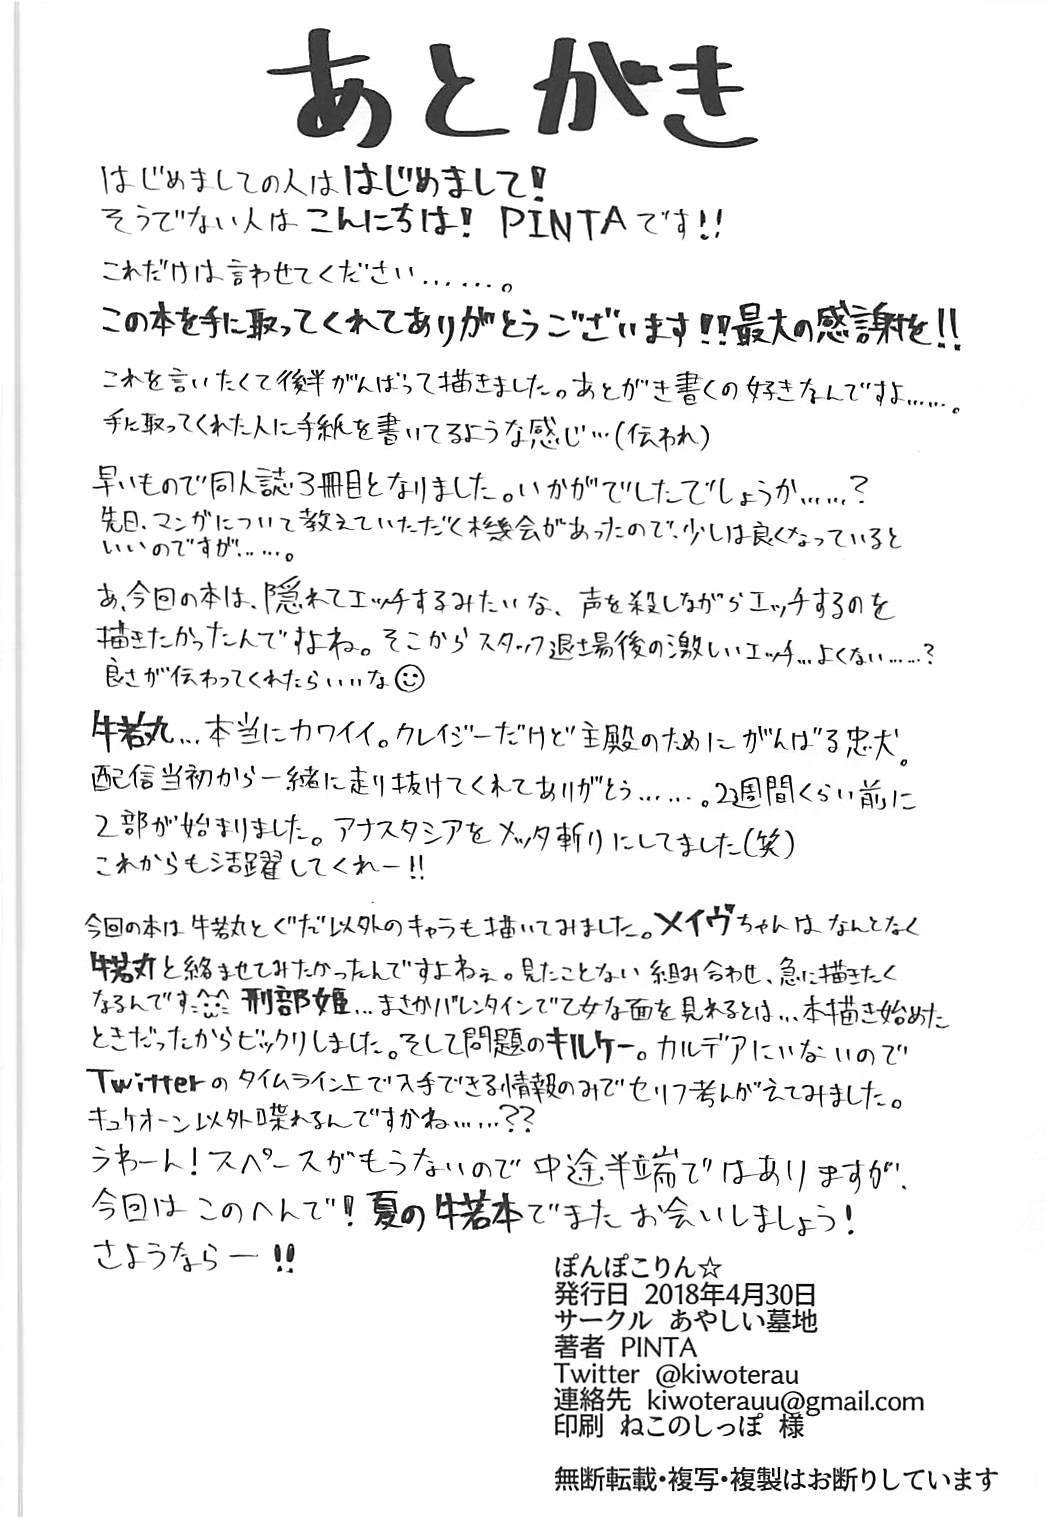 あとがき
はじめましての人ははじめまして!
そうでない人はこんにちは! PINTAです!!
これだけは言わせてください.......。
この本を手に取ってくれてありがとうございます!!最大の感謝を!!
これを言いたくて後半がんばって描きました。あとがき書くの好きなんですよ......。
手に取ってくれた人に手紙を書いてるような感じ...(伝われ)
早いもので同人誌3冊目となりました。いかがでしたでしょうか......?
先日、マンガについて教えていただく機会があったので、少しは良くなっていると
いいのですが......。
あ、今回の本は、隠れてエッチするみたいな、声を殺しながらエッチするのを
描きたかったんですよね。そこからスタッフ退場後の激しいエッチ...よくない......?
良さが伝わってくれたらいいな☺
牛若丸...本当にカワイイ。クレイジーだけど主殿のためにがんばる忠犬。
配信当初から一緒に走り抜けてくれてありがとう......。2週間くらい前に
2部が始まりました。アナスタシアをメッタ斬りにしてました(笑)
これからも活躍してくれー!!
今回の本は牛若丸とぐだ以外のキャラも描いてみました。メイヴちゃんはなんとなく
牛若丸と絡ませてみたかったんですよねぇ。見たことない組み合わせ、急に描きたく
なるんです 刑部姫...まさかバレンタインで乙女な面を見れるとは...本描き始めた
ときだったからビックリしました。そして問題のキルケー。カルデアにいないので
Twitterのタイムライン上で入手できる情報のみでセリフ考えてみました。
キュケオーン以外喋れるんですかね......??
うわーん!スペースがもうないので中途半端ではありますが、
今回はこのへんで!夏の牛若本でまたお会いしましょう!
さようならー!!
ぽんぽこりん☆
発行日 2018年4月30日
サークル あやしい墓地
著者 PINTA
Twitter @kiwoterau
連絡先 kiwoterauu@gmail.com
印刷 ねこのしっぽ 様
無断転載・複写・複製はお断りしています